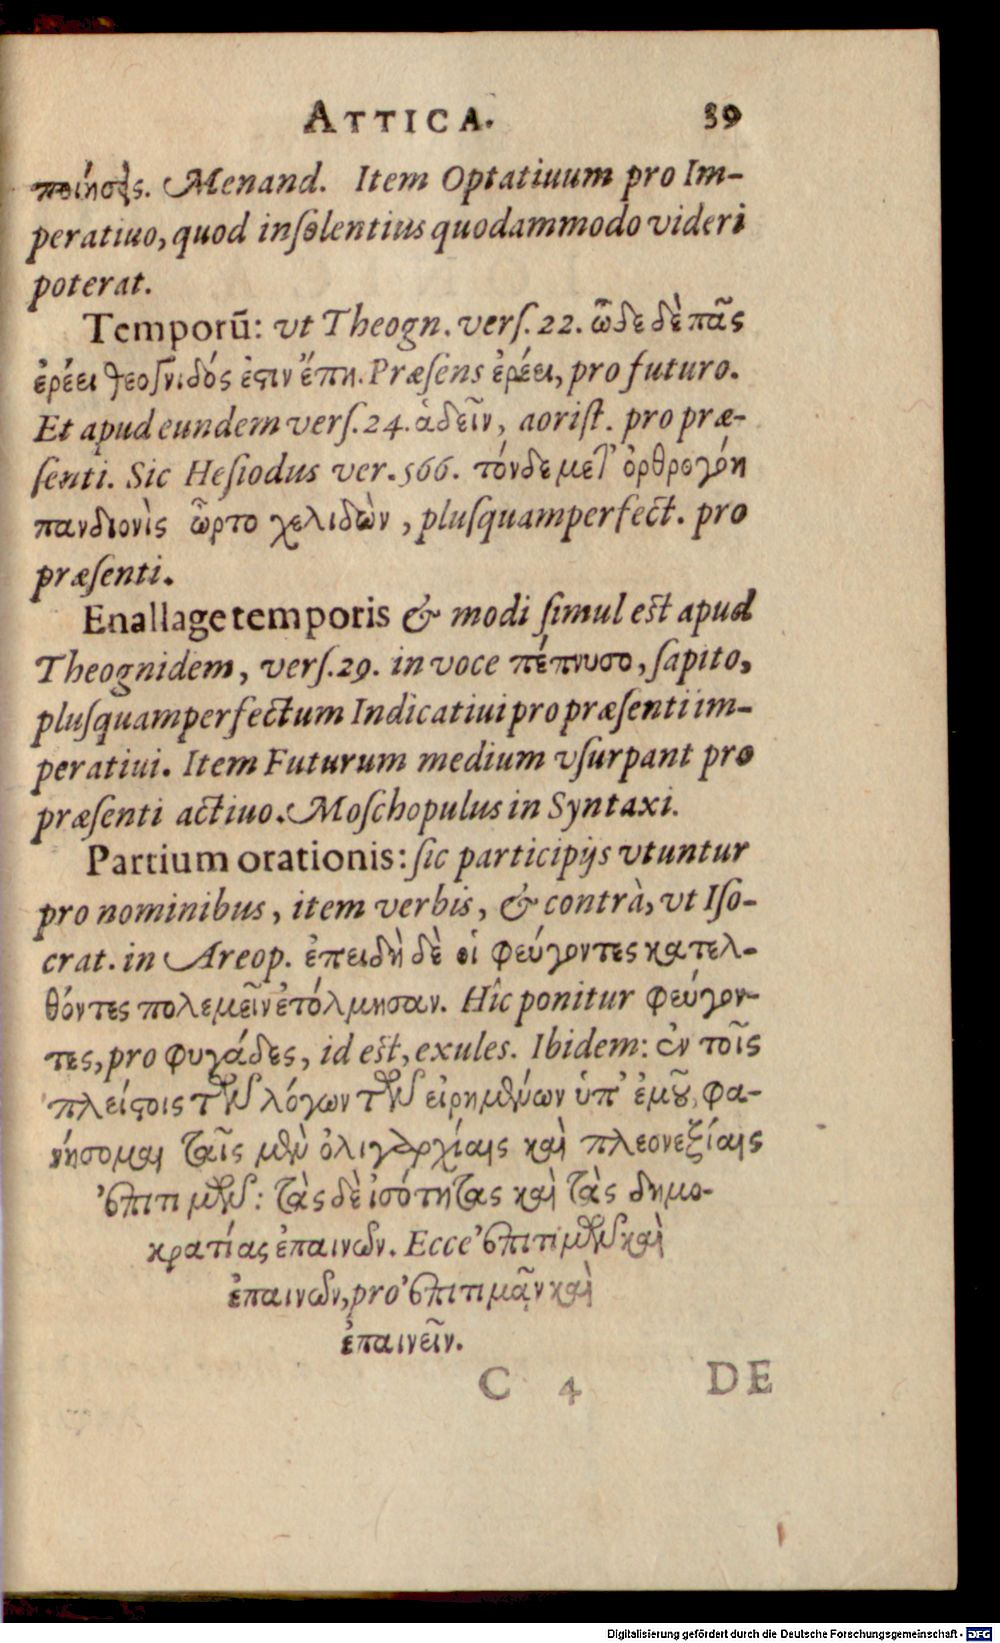 ATTICA. 39
ποίησῃς. Menand. Item Optatiuum pro Im-
peratiuo, quod insolentius quodammodo videri
poterat.
Temporū: vt Theogn. vers. 22. ὧδε δὲ πᾶς
ἐρέει θεόγνιδός ἐστιν ἔπη. Præsens ἐρέει, pro futuro.
Et apud eundem vers. 24. ἁδεῖν, aorist. pro præ-
senti. Sic Hesiodus ver. 566. τόνδε μετ' ὀρθρογόη
πανδιονὶς ὦρτο χελιδὼν, plusquamperfect. pro
præsenti.
Enallage temporis & modi simul est apud
Theognidem, vers. 29. in voce πέπνυσο, sapito,
plusquamperfectum Indicatiui pro præsenti im-
peratiui. Item Futurum medium vsurpant pro
præsenti actiuo. Moschopulus in Syntaxi.
Partium orationis: sic participijs vtuntur
pro nominibus, item verbis, & contrà, vt Iso-
crat. in Areop. ἐπειδὴ δὲ οἱ φεύγοντες κατελ-
θόντες πολεμεῖν ἐτόλμησαν. Hîc ponitur φεύγον-
τες, pro φυγάδες, id est, exules. Ibidem: ἐν τοῖς
πλείστοις τῶν λόγων τῶν εἰρημένων ὑπ' ἐμοῦ, φα-
νήσομαι ταῖς μὲν ὀλιγαρχίαις καὶ πλεονεξίαις
ἐπιτιμῶν: τὰς δὲ ἰσότητας καὶ τὰς δημο-
κρατίας ἐπαινῶν. Ecce ἐπιτιμῶν καὶ
ἐπαινῶν, pro ἐπιτιμᾷν καὶ
ἐπαινεῖν.
C 4 DE
Digitalisierung gefördert durch die Deutsche Forschungsgemeinschaft - DFG